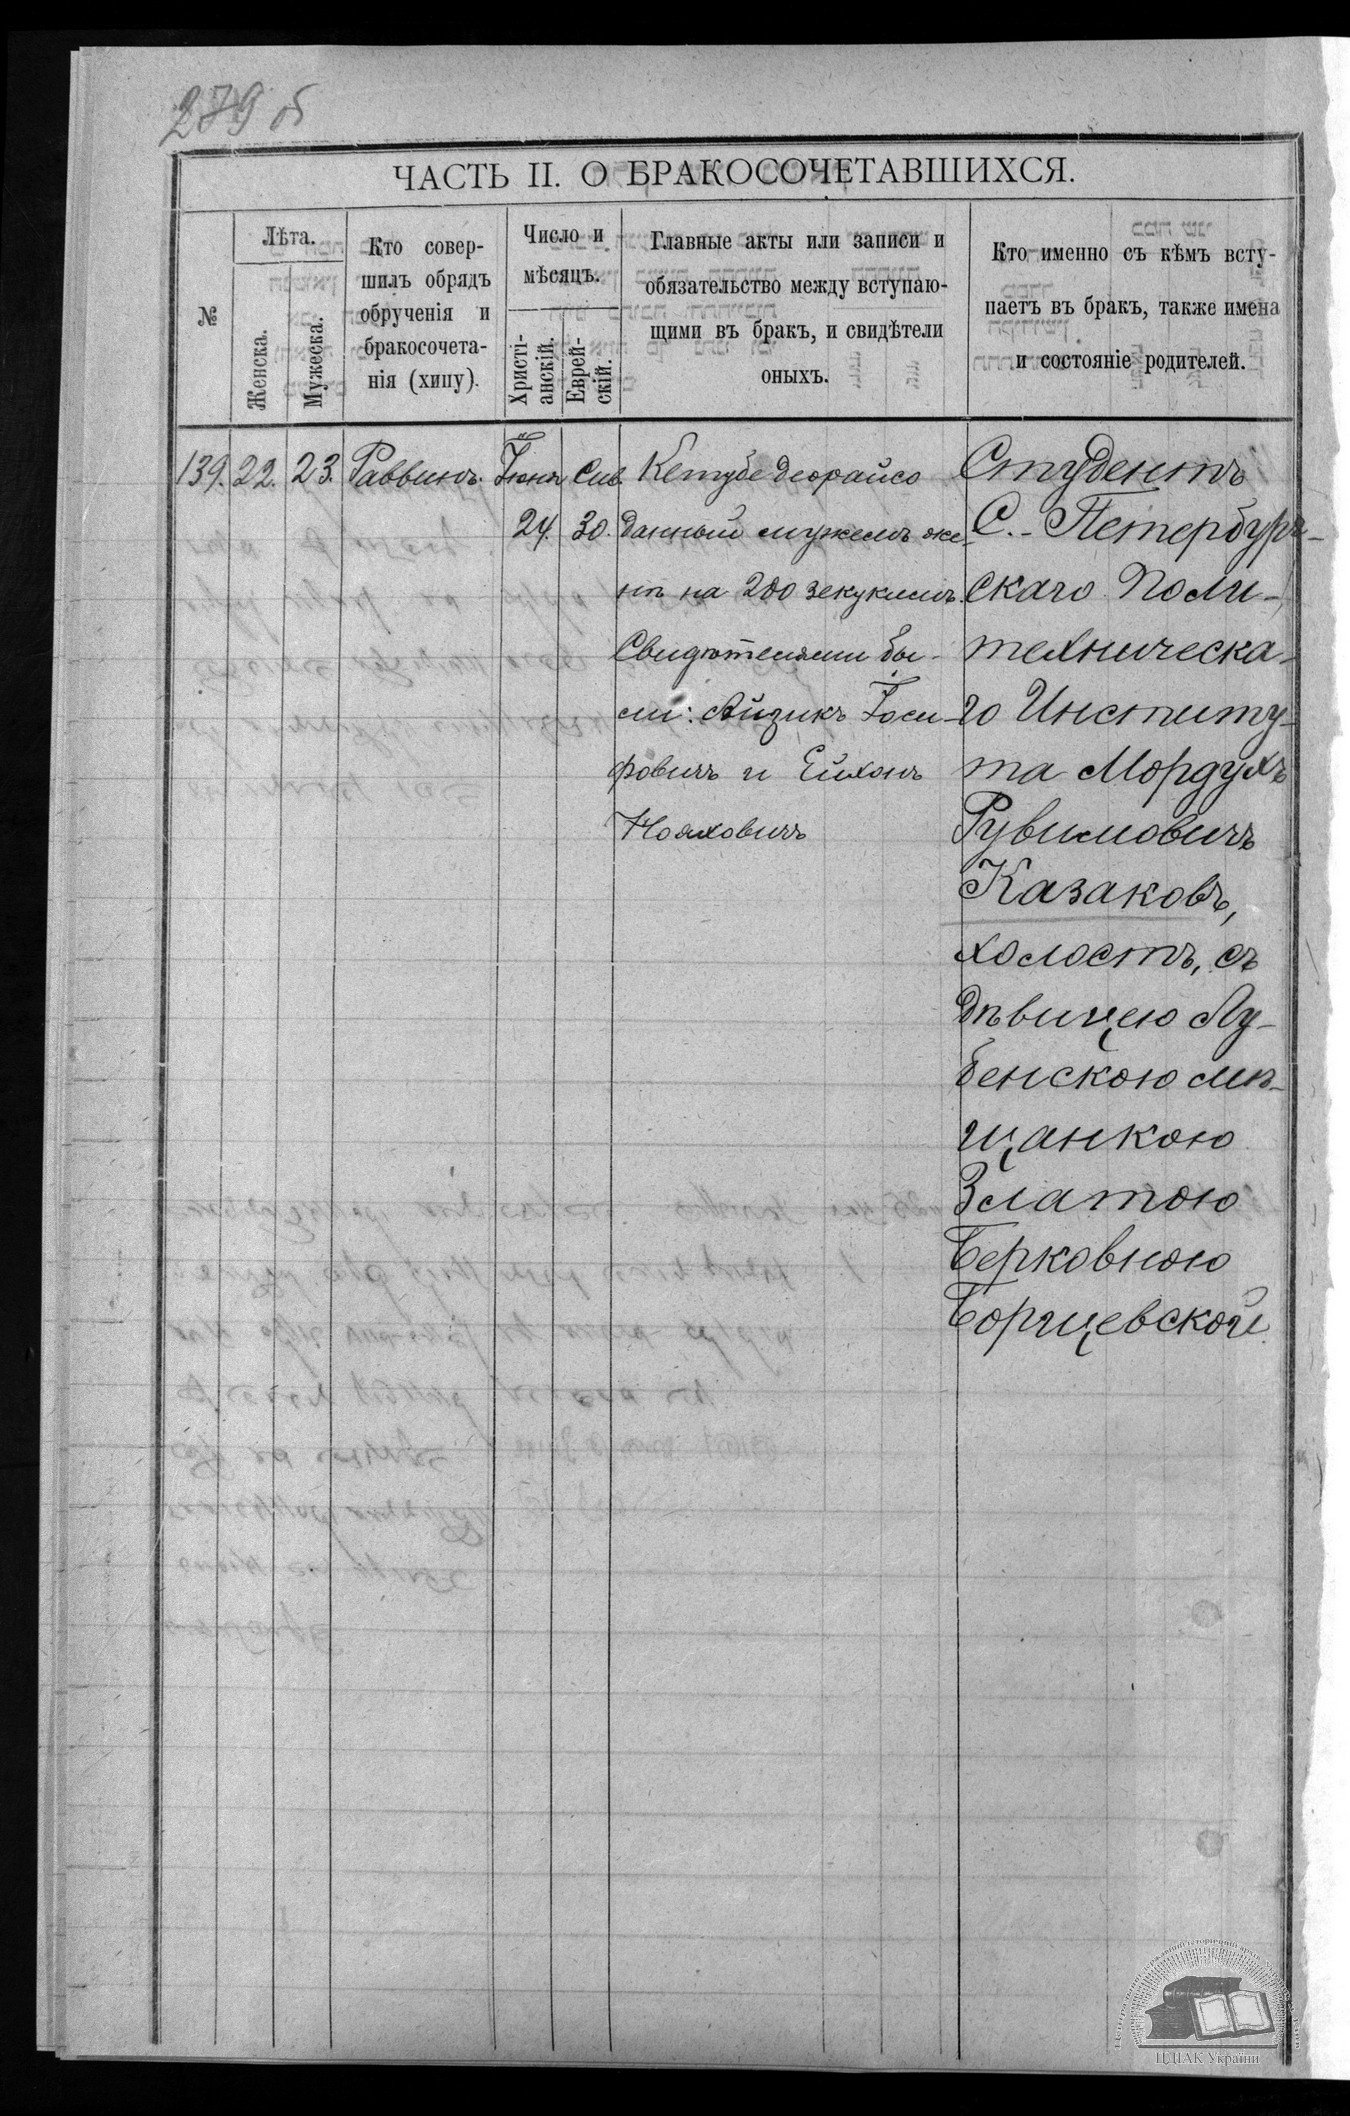 279 б
ЧАСТЬ II. О БРАКОСОЧЕТАВШИХСЯ.
№
Лѣта.
Женска.
Мужеска.
Кто совер-
шилъ обрядъ
обрученія и
бракосочета-
нія (хипу).
Число и
мѣсяцъ.
Христі-
анскій.
Еврей-
скій.
Главные акты или записи и
обязательство между вступаю-
щими въ бракъ, и свидѣтели
оныхъ.
Кто именно съ кѣмъ всту-
паетъ въ бракъ, также имена
и состояніе родителей.
139. 22. 23. Раввинъ. Іюня Сив.
24. 30.
Кетубе деорайсо
данный мужемъ же-
нѣ на 200 зекукимъ.
Свидѣтелями бы-
ли: Айзикъ Іоси-
фовичъ и Ейхонъ
Нояховичъ
Студентъ
С.-Петербург-
скаго Поли-
техническа-
го Институ-
та Мордухъ
Рувимовичъ
Казаковъ,
холостъ, съ
дѣвицею Лу-
бенскою мѣ-
щанкою
Златою
Берковною
Борщевской
ЦДІАК України